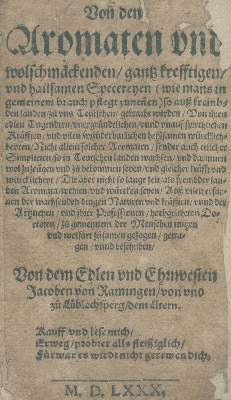 Von den
Aromaten vnd
wolschmäckenden / gantz krefftigen /
vnd hailsamen Specereyen / wie mans in
gemeinem brauch pflegt zunennen / so auß frembden
landen zu vns Teutschen / gebracht werden / Von jhren
edlen Tugenten / vnergründtlichen / vnd
Kräfften / vnd vilen wunderbarlichen
Nicht allein solcher Aromaten / sender auch etlicher
Simplicien / so in Teutschen landen wachsen / vnd darinnen
wol zuzeugen vnd zu bekommen seien
Die aber nicht so lange zeit / als
den Aromata / weren / vnd
der wachsenden dingen Naturen vnd kräfften / vnnd der
Artzneyen / vnd jhrer Professionen / hochgelerten
zu gemeinem der Menschen nutzen
vnd wolfart zusamen gezogen /
gen / vnnd beschriben /
Von dem Edlen vnd Ehnuesten
Jacoben von Ramingen / von vnd
zu Lüblachsperg / dem ältern.
Kauff vnd lese mich /
Erweg / probier alls fleissiglich /
Fürwar es wirdt nicht gerewen dich,
M. D. LXXX.